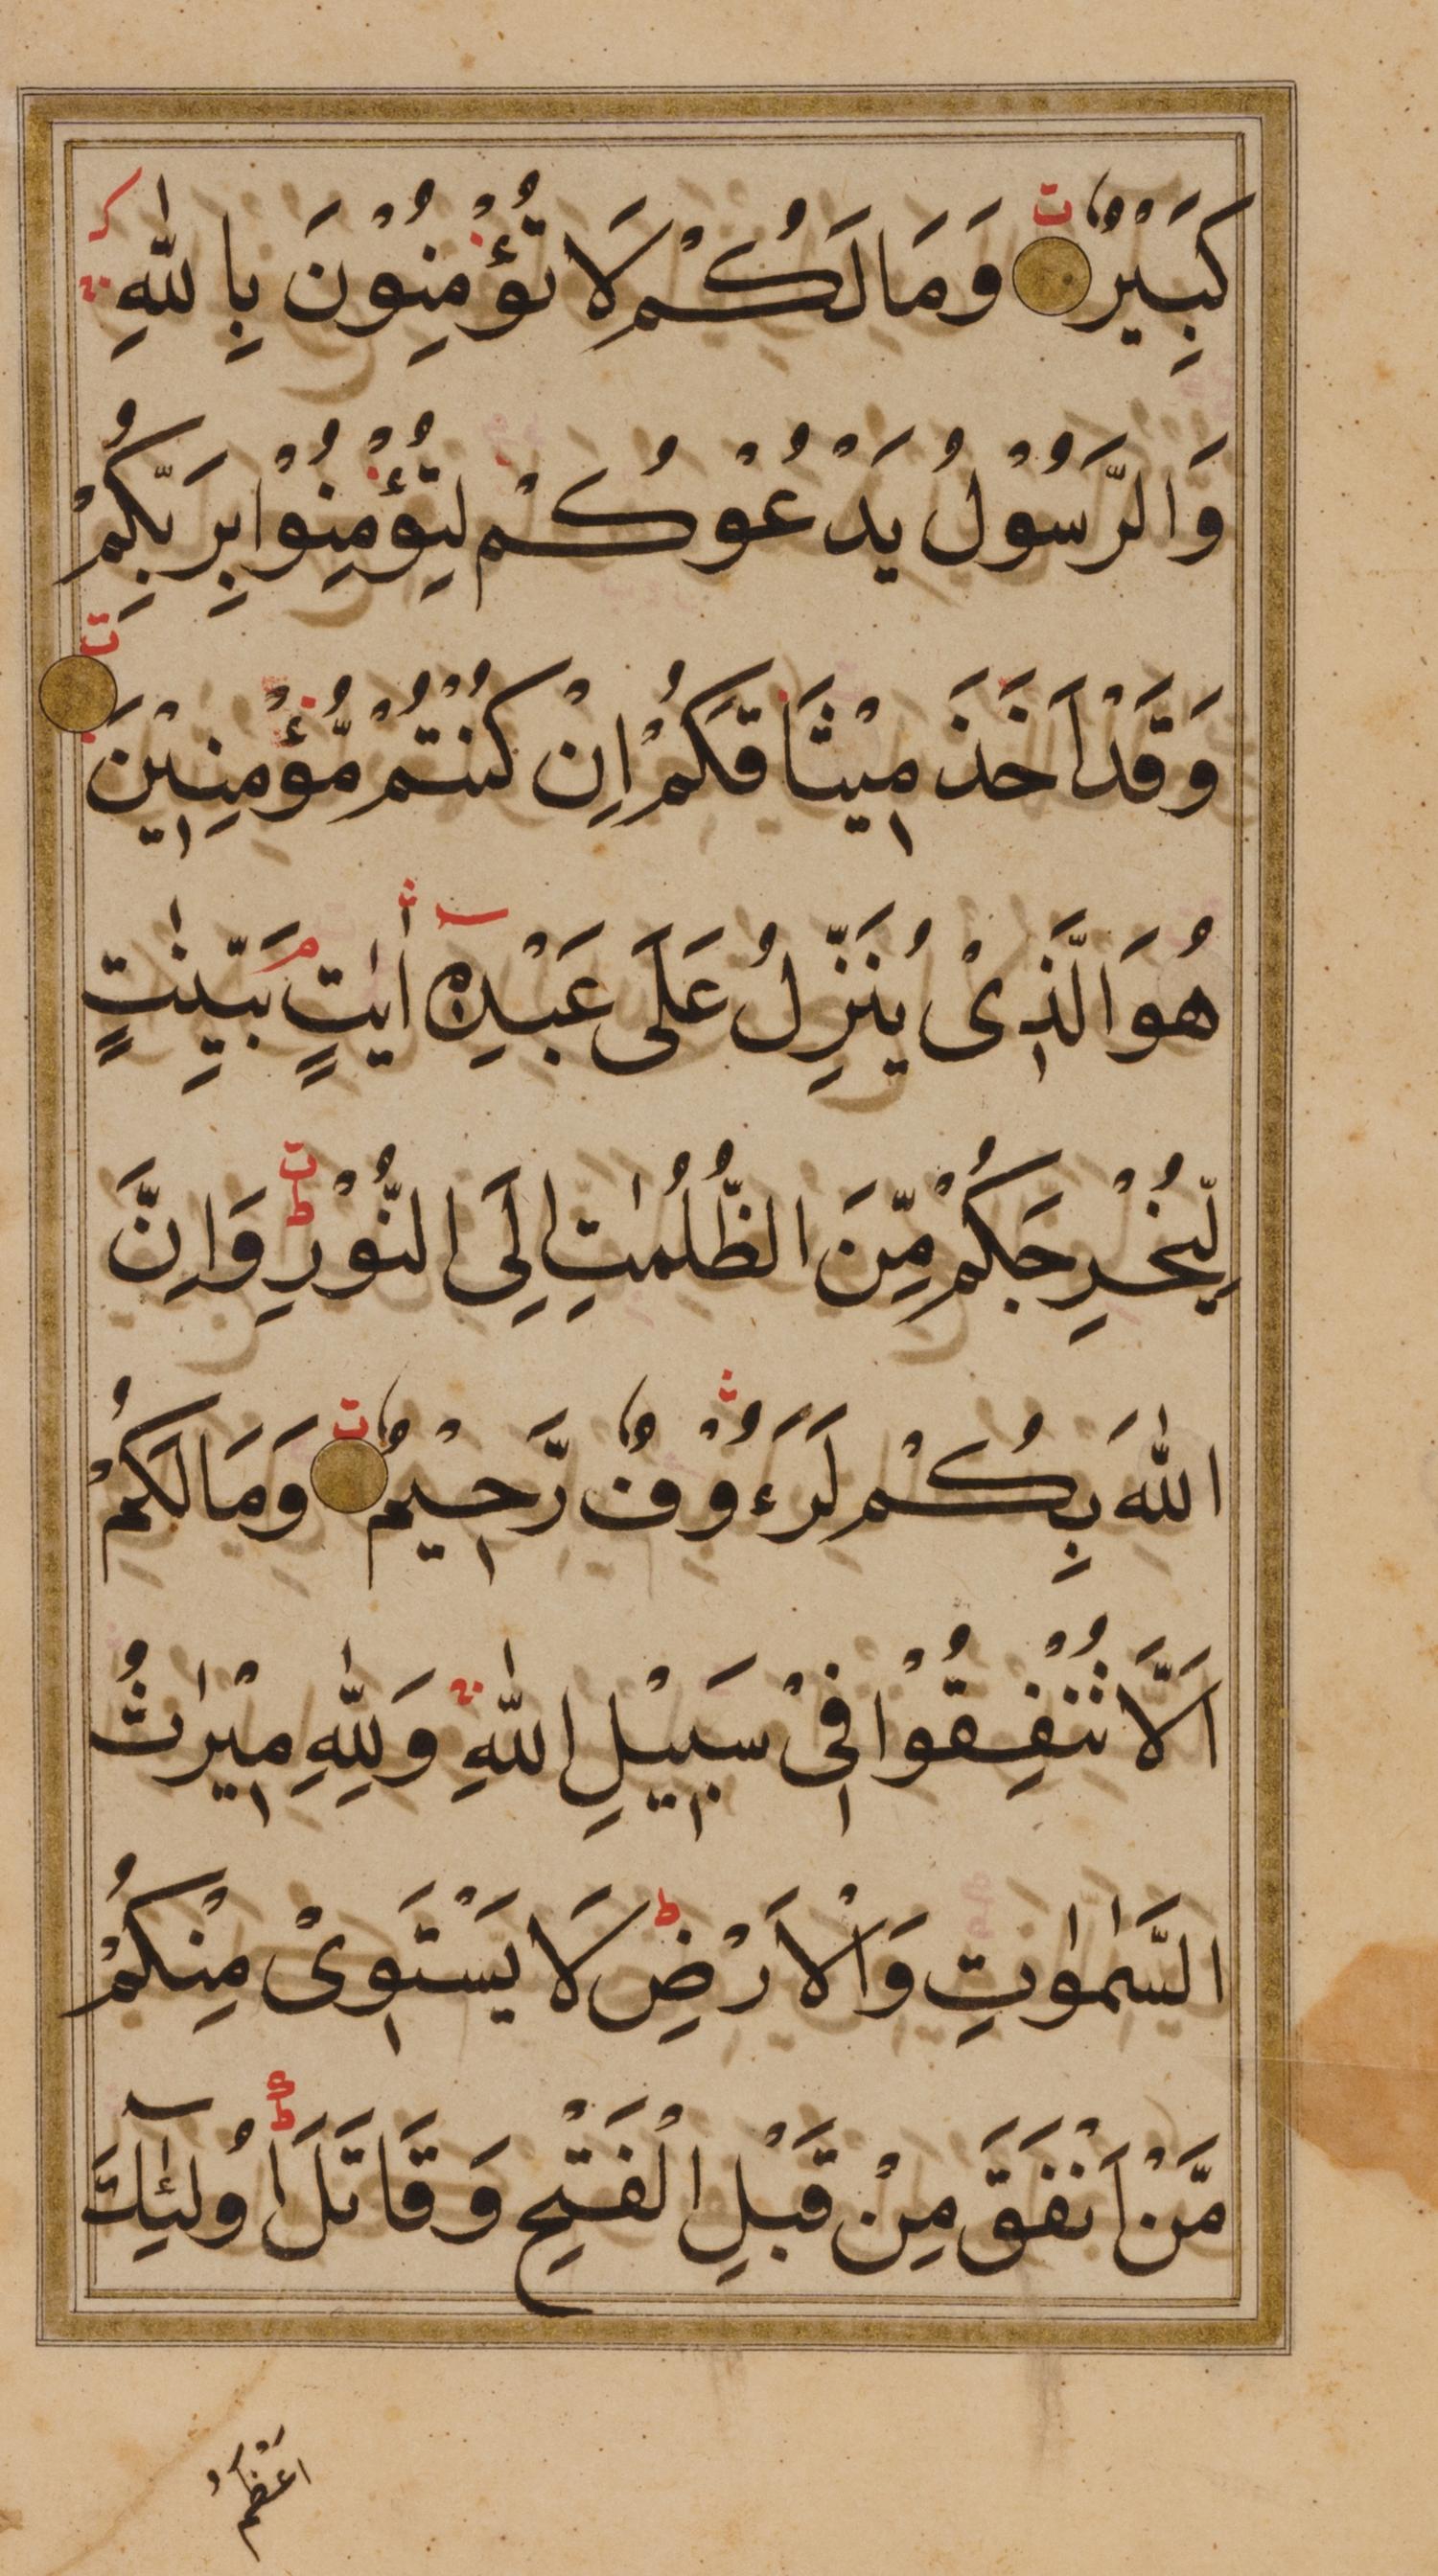 كَبِيْرٌ وَمَا لَكُمْ لَا تُؤْمِنُوْنَ بِاللّٰهِ
وَالرَّسُوْلُ يَدْعُوْكُمْ لِتُؤْمِنُوْا بِرَبِّكُمْ
وَقَدْ اَخَذَ مِيْثَاقَكُمْ اِنْ كُنْتُمْ مُّؤْمِنِيْنَ
هُوَ الَّذِىْ يُنَزِّلُ عَلَى عَبْدِهٖ اٰيٰتٍ بَيِّنٰتٍ
لِّيُخْرِجَكُمْ مِّنَ الظُّلُمٰتِ اِلَى النُّوْرِ وَاِنَّ
اللّٰهَ بِكُمْ لَرَءُوْفٌ رَّحِيْمٌ وَمَا لَكُمْ
اَلَّا تُنْفِقُوْا فِىْ سَبِيْلِ اللّٰهِ وَلِلّٰهِ مِيْرٰثُ
السَّمٰوٰتِ وَالْاَرْضِ لَا يَسْتَوِىْ مِنْكُمْ
مَّنْ اَنْفَقَ مِنْ قَبْلِ الْفَتْحِ وَقَاتَلَ اُولٰٓئِكَ
اَعْظَمُ